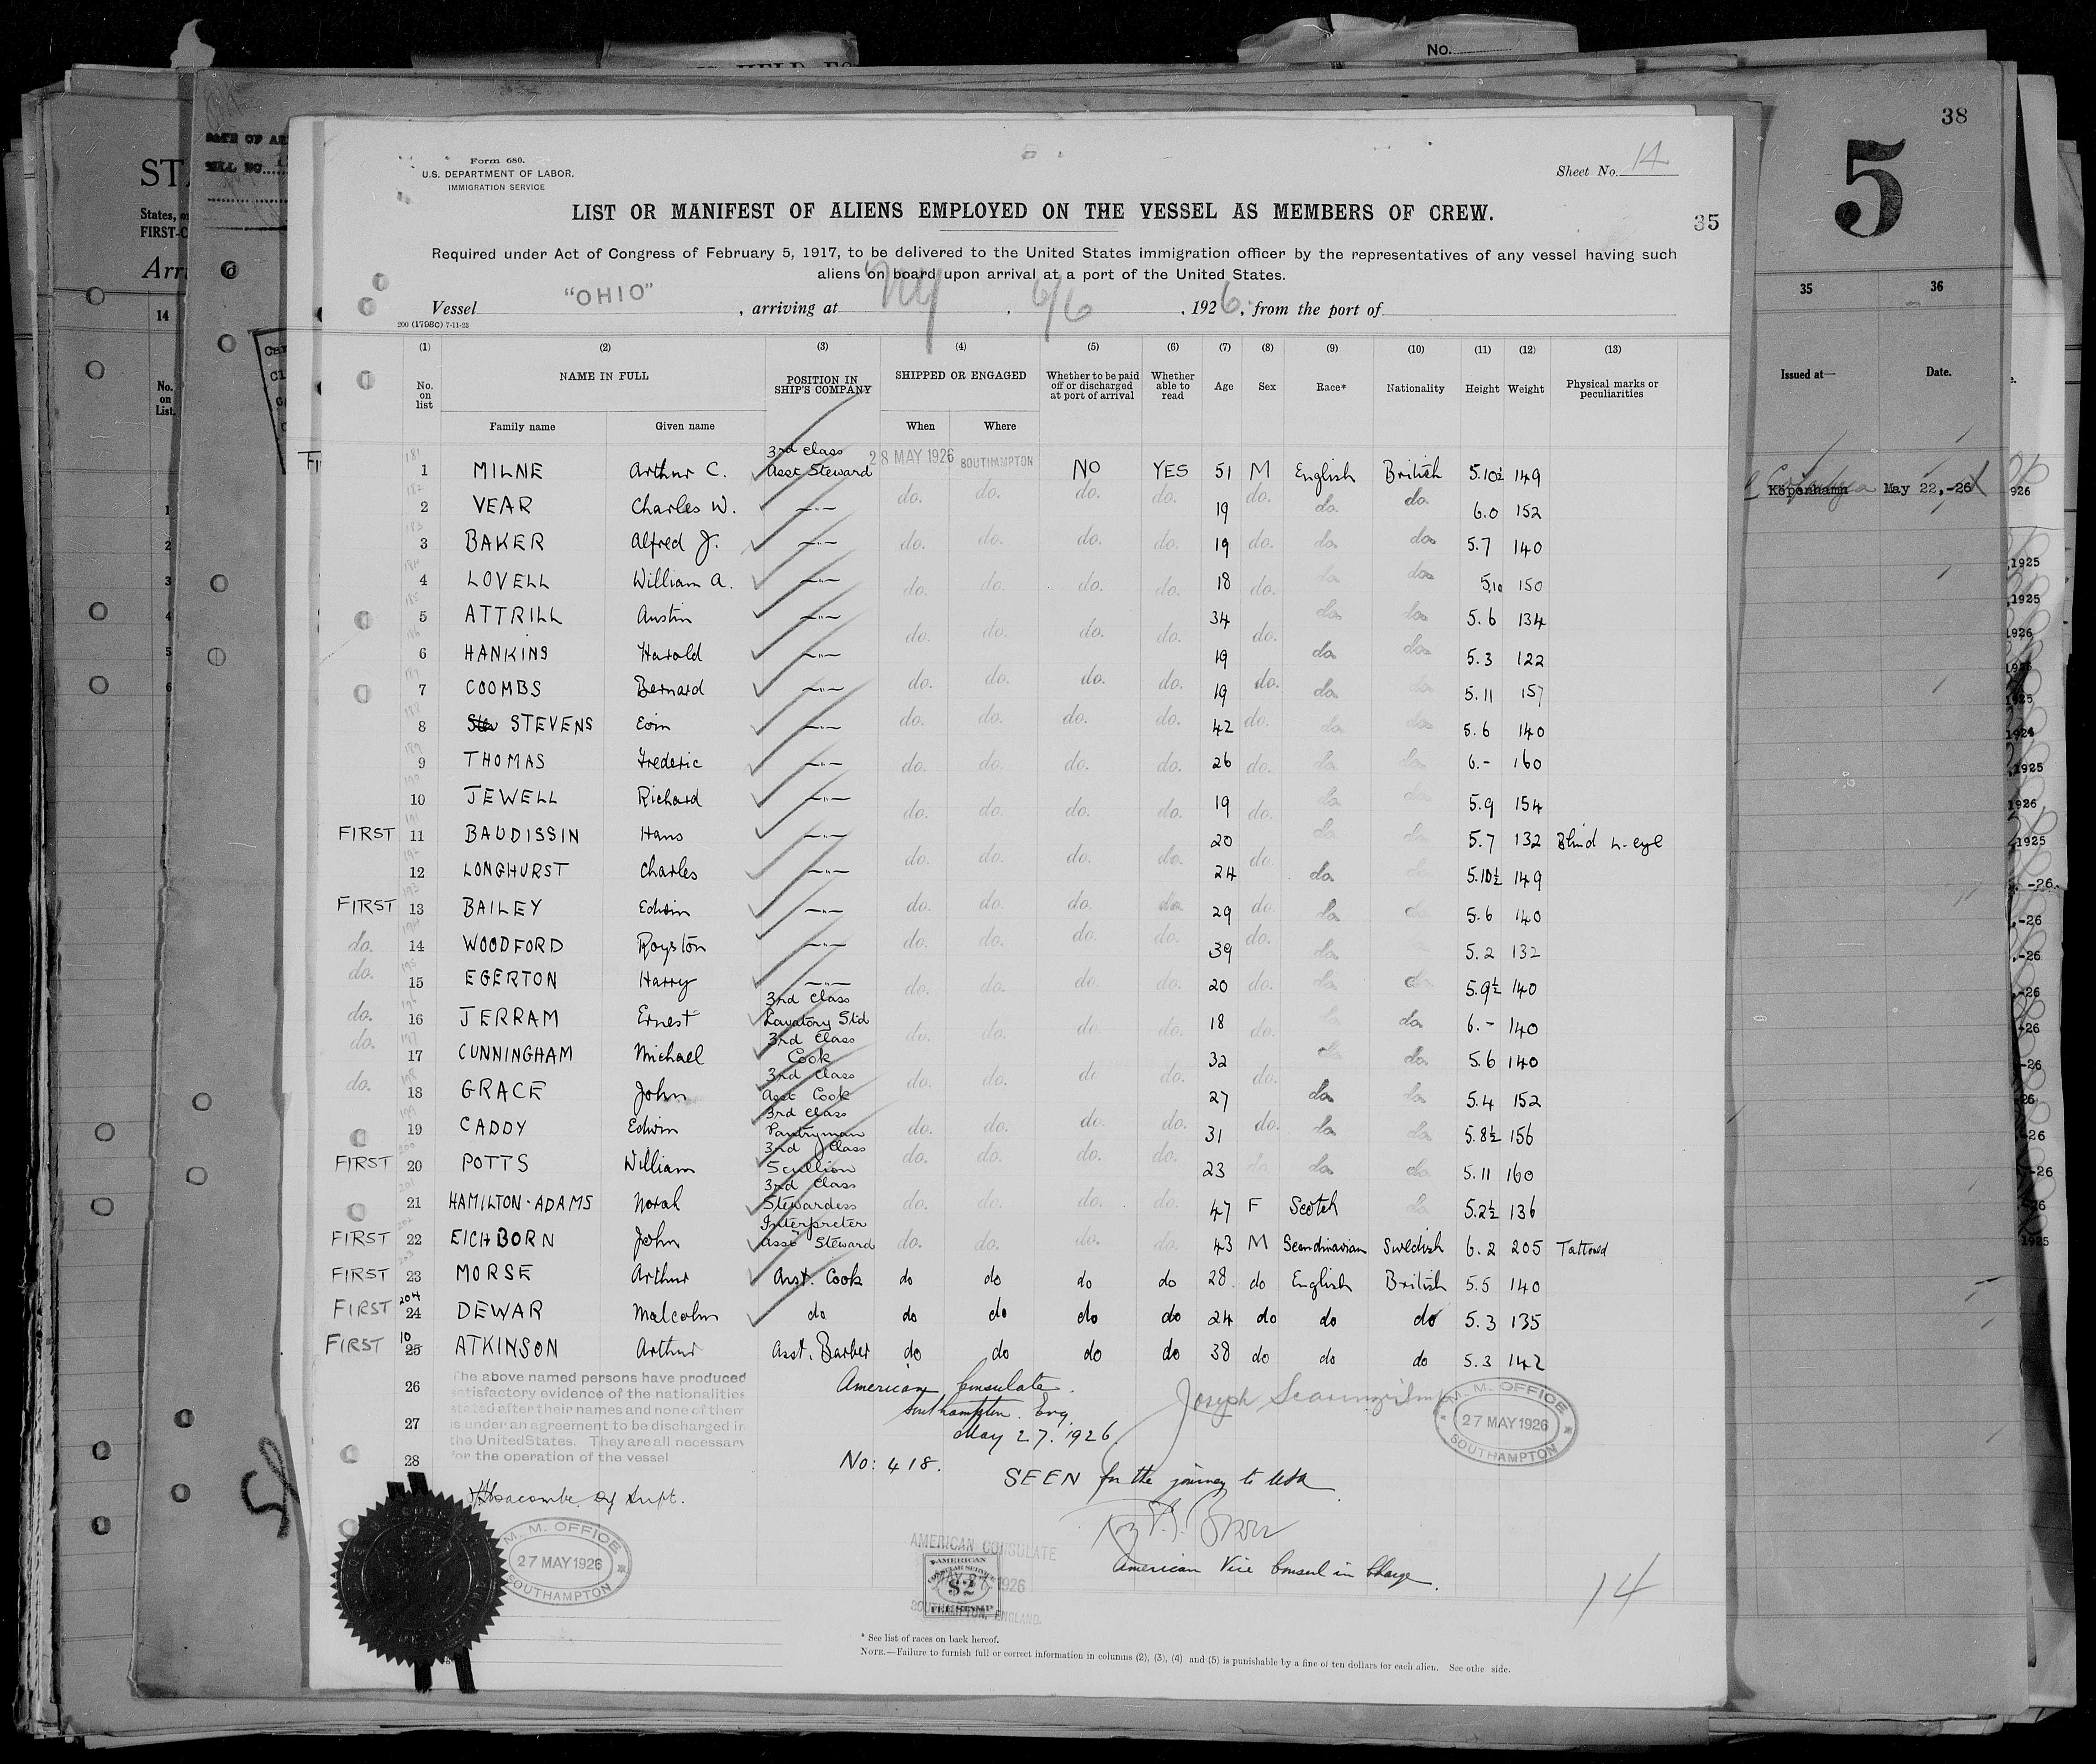 No.
38
5
35 36
Issued at— Date.
Kopenhamn May 22,-26
14
No. on List.
Form 680.
U.S. DEPARTMENT OF LABOR.
IMMIGRATION SERVICE
Sheet No. 14
LIST OR MANIFEST OF ALIENS EMPLOYED ON THE VESSEL AS MEMBERS OF CREW.
35
Required under Act of Congress of February 5, 1917, to be delivered to the United States immigration officer by the representatives of any vessel having such
aliens on board upon arrival at a port of the United States.
Vessel "OHIO", arriving at NY, 6/6, 1926, from the port of
200 (1798C) 7-11-23
(1) (2) (3) (4) (5) (6) (7) (8) (9) (10) (11) (12) (13)
No. on list NAME IN FULL POSITION IN SHIP'S COMPANY SHIPPED OR ENGAGED Whether to be paid off or discharged at port of arrival Whether able to read Age Sex Race* Nationality Height Weight Physical marks or peculiarities
Family name Given name When Where
181 1 MILNE Arthur C. 3rd Class Asst Steward 28 MAY 1926 SOUTHAMPTON NO YES 51 M English British 5.10½ 149
182 2 VEAR Charles W. —"— do. do. do. do. 19 do. do. do. 6.0 152
183 3 BAKER Alfred J. —"— do. do. do. do. 19 do. do do 5.7 140
184 4 LOVELL William A. —"— do. do. do. do. 18 do. do do 5.10 150
185 5 ATTRILL Austin —"— do. do. do. do. 34 do. do do 5.6 134
186 6 HANKINS Harold —"— do. do. do. do. 19 do. do do 5.3 122
187 7 COOMBS Bernard —"— do. do. do. do. 19 do. do do 5.11 157
188 8 STEVENS Eoin —"— do. do. do. do. 42 do. do do 5.6 140
189 9 THOMAS Frederic —"— do. do. do. do. 26 do. do do 6.- 160
190 10 JEWELL Richard —"— do. do. do. do. 19 do. do do 5.9 154
FIRST 191 11 BAUDISSIN Hans —"— do. do. do. do. 20 do do 5.7 132 Blind L. eye
192 12 LONGHURST Charles —"— do. do. do. do. 24 do. do do 5.10½ 149
FIRST 193 13 BAILEY Edwin —"— do. do. do. do. 29 do. do do 5.6 140
do. 194 14 WOODFORD Royston —"— do. do. do. do. 39 do. do 5.2 132
do. 195 15 EGERTON Harry —"— do. do. do. do. 20 do. do do 5.9½ 140
do. 196 16 JERRAM Ernest 3rd Class Lavatory Std do. do. do. do. 18 do. do do. 6.- 140
do. 197 17 CUNNINGHAM Michael 3rd Class Cook 32 do do. 5.6 140
do. 198 18 GRACE John 3rd Class Asst Cook do. do. do do. 27 do. do do 5.4 152
199 19 CADDY Edwin 3rd Class Pantryman do. do. do. do. 31 do. do do 5.8½ 156
FIRST 200 20 POTTS William 3rd Class Scullion do. do. do. do. 23 do. do do 5.11 160
201 21 HAMILTON-ADAMS Norah 3rd Class Stewardess do. do. do. do. 47 F Scotch do 5.2½ 136
FIRST 202 22 EICHBORN John Interpreter Asst Steward do. do. do. do. 43 M Scandinavian Swedish 6.2 205 Tattoed
FIRST 203 23 MORSE Arthur Asst. Cook do do do do 28 do English British 5.5 140
FIRST 204 24 DEWAR Malcolm do do do do do 24 do do do 5.3 135
FIRST 10 25 ATKINSON Arthur Asst. Barber do do do do 38 do do do 5.3 142
26
27
28
The above named persons have produced
satisfactory evidence of the nationalities
stated after their names and none of them
is under an agreement to be discharged in
the United States. They are all necessary
for the operation of the vessel
Dy Supt.
M. M. OFFICE
27 MAY 1926
SOUTHAMPTON
American Consulate.
Southampton. Eng.
May 27. 1926.
No: 418.
SEEN for the journey to USA
American Vice Consul in Charge.
M. M. OFFICE
27 MAY 1926
SOUTHAMPTON
AMERICAN CONSULATE
AMERICAN CONSULAR SERVICE
$2
FEE STAMP
MAY 27 1926
SOUTHAMPTON, ENGLAND.
14
* See list of races on back hereof.
NOTE.—Failure to furnish full or correct information in columns (2), (3), (4) and (5) is punishable by a fine of ten dollars for each alien. See othe side.